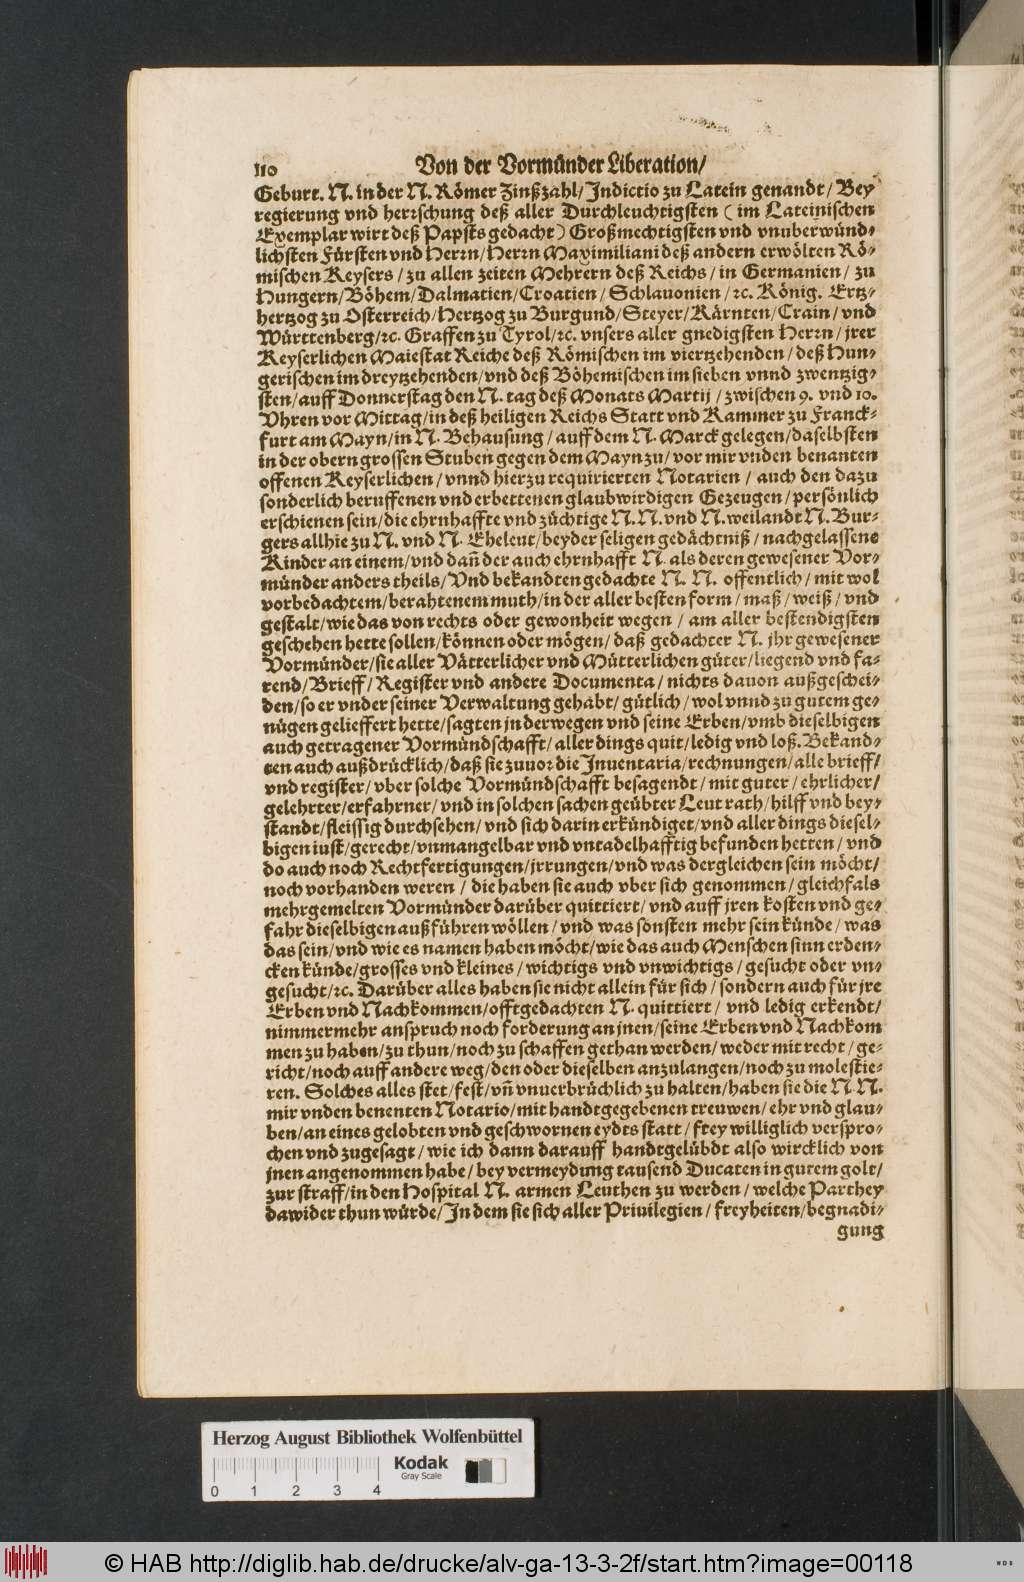 110 Von der Vormünder Liberation/
Geburt. N. in der N. Römer Zinßzahl/ Indictio zu Latein genandt/ Bey
regierung vnd herrschung deß aller Durchleuchtigsten ( im Lateinischen
Exemplar wirt deß Papsts gedacht) Großmechtigsten vnd vnuberwünd-
lichsten Fürsten vnd Herrn/ Herrn Maximiliani deß andern erwölten Rö-
mischen Keysers / zu allen zeiten Mehrern deß Reichs / in Germanien / zu
Hungern/ Böhem/ Dalmatien/ Croatien / Schlauonien / ꝛc. König. Ertz-
hertzog zu Osterreich/ Hertzog zu Burgund/ Steyer/ Kärnten/ Crain/ vnd
Württenberg/ ꝛc. Graffen zu Tyrol/ ꝛc. vnsers aller gnedigsten Herrn / jrer
Keyserlichen Maiestat Reiche deß Römischen im viertzehenden / deß Hun-
gerischen im dreytzehenden/ vnd deß Böhemischen im sieben vnnd zwentzig-
sten/ auff Donnerstag den N. tag deß Monats Martij / zwischen 9. vnd 10.
Vhren vor Mittag/ in deß heiligen Reichs Statt vnd Kammer zu Franck-
furt am Mayn/ in N. Behausung / auff dem N. Marck gelegen/ daselbsten
in der obern grossen Stuben gegen dem Mayn zu/ vor mir vnden benanten
offenen Keyserlichen / vnnd hierzu requirierten Notarien / auch den dazu
sonderlich beruffenen vnd erbettenen glaubwirdigen Gezeugen / persönlich
erschienen sein/ die ehrnhaffte vnd züchtige N. N. vnd N. weilandt N. Bur-
gers allhie zu N. vnd N. Eheleut/ beyder seligen gedächtniß / nachgelassene
Kinder an einem/ vnd dañ der auch ehrnhafft N. als deren gewesener Vor-
münder anders theils/ Vnd bekandten gedachte N. N. offentlich / mit wol
vorbedachtem/ berahtenem muth/ in der aller besten form / maß / weiß / vnd
gestalt/ wie das von rechts oder gewonheit wegen / am aller bestendigsten
geschehen hette sollen/ können oder mögen/ daß gedachter N. jhr gewesener
Vormünder/ sie aller Vätterlicher vnd Mütterlichen güter/ liegend vnd fa-
rend/ Brieff/ Register vnd andere Documenta / nichts dauon außgeschei-
den/ so er vnder seiner Verwaltung gehabt/ gütlich / wol vnnd zu gutem ge-
nügen gelieffert hette/ sagten jn derwegen vnd seine Erben/ vmb dieselbigen
auch getragener Vormündschafft/ aller dings quit/ ledig vnd loß. Bekand-
ten auch außdrücklich/ daß sie zuuor die Inuentaria/ rechnungen/ alle brieff/
vnd register/ vber solche Vormündschafft besagendt / mit guter / ehrlicher/
gelehrter/ erfahrner/ vnd in solchen sachen geübter Leut rath/ hilff vnd bey-
standt/ fleissig durchsehen/ vnd sich darin erkündiget/ vnd aller dings diesel-
bigen iust/ gerecht/ vnmangelbar vnd vntadelhafftig befunden hetten / vnd
do auch noch Rechtfertigungen/ jrrungen/ vnd was dergleichen sein möcht/
noch vorhanden weren / die haben sie auch vber sich genommen / gleichfals
mehrgemelten Vormünder darüber quittiert/ vnd auff jren kosten vnd ge-
fahr dieselbigen außführen wöllen / vnd was sonsten mehr sein künde / was
das sein/ vnd wie es namen haben möcht/ wie das auch Menschen sinn erden-
cken künde/ grosses vnd kleines / wichtigs vnd vnwichtigs / gesucht oder vn-
gesucht/ ꝛc. Darüber alles haben sie nicht allein für sich / sondern auch für jre
Erben vnd Nachkommen/ offtgedachten N. quittiert / vnd ledig erkendt/
nimmermehr anspruch noch forderung an jnen/ seine Erben vnd Nachkom
men zu haben/ zu thun/ noch zu schaffen gethan werden/ weder mit recht / ge-
richt/ noch auff andere weg/ den oder dieselben anzulangen/ noch zu molestie-
ren. Solches alles stet/ fest/ vñ vnuerbrüchlich zu halten/ haben sie die N. N.
mir vnden benenten Notario/ mit handtgegebenen treuwen/ ehr vnd glau-
ben/ an eines gelobten vnd geschwornen eydts statt / frey williglich verspro-
chen vnd zugesagt / wie ich dann darauff handtgelübdt also wircklich von
jnen angenommen habe / bey vermeydung tausend Ducaten in gutem golt/
zur straff/ in den Hospital N. armen Leuthen zu werden / welche Parthey
dawider thun würde/ In dem sie sich aller Priuilegien / freyheiten/ begnadi-
gung
Herzog August Bibliothek Wolfenbüttel
Kodak
Gray Scale
0 1 2 3 4
© HAB http://diglib.hab.de/drucke/alv-ga-13-3-2f/start.htm?image=00118